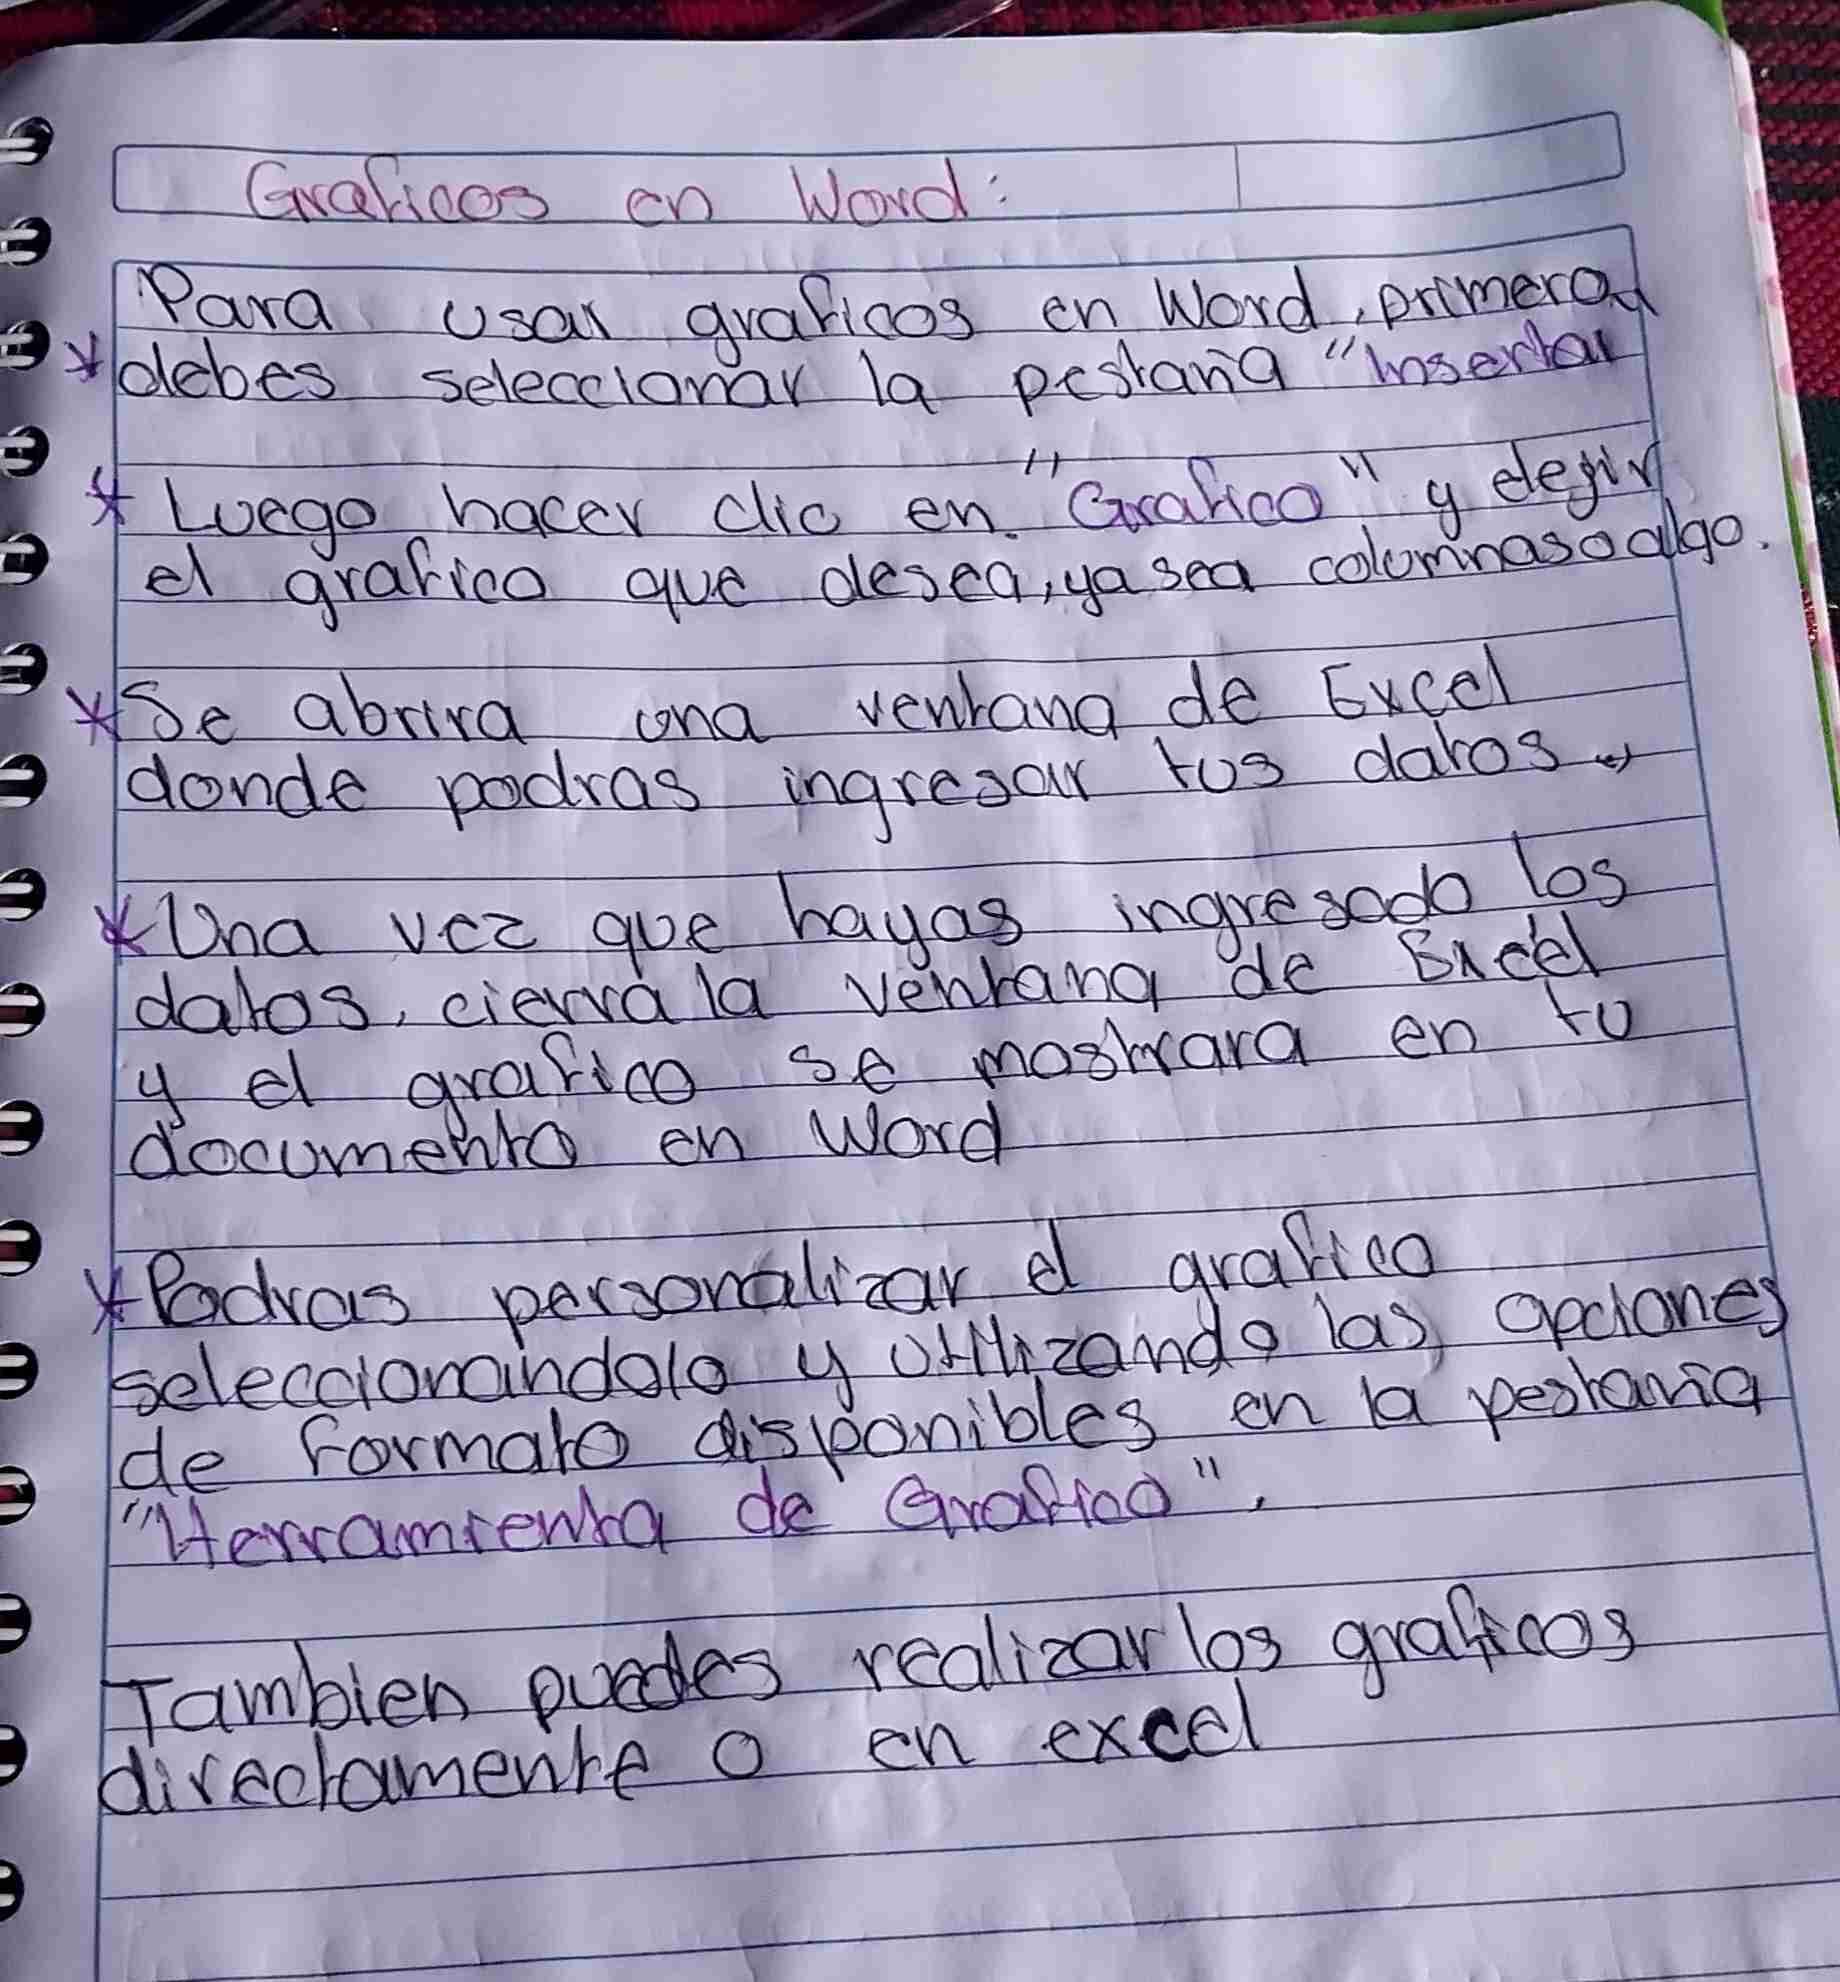 Graficos en Word:
Para usar graficos en Word, primero
* debes seleccionar la pestaña "Insertar
* Luego hacer clic en. "Grafico" y elegir
el grafico que desea, ya sea columnas o algo.
* Se abrira una ventana de Excel
donde podras ingresar tus datos
* Una vez que hayas ingresado los
datos, cierra la ventana de Excel
y el grafico se mostrara en tu
documento en Word
* Podras personalizar el grafico
seleccionandolo y utilizando las opciones
de formato disponibles en la pestaña
"Herramienta de Grafico".
Tambien puedes realizar los graficos
directamente o en excel